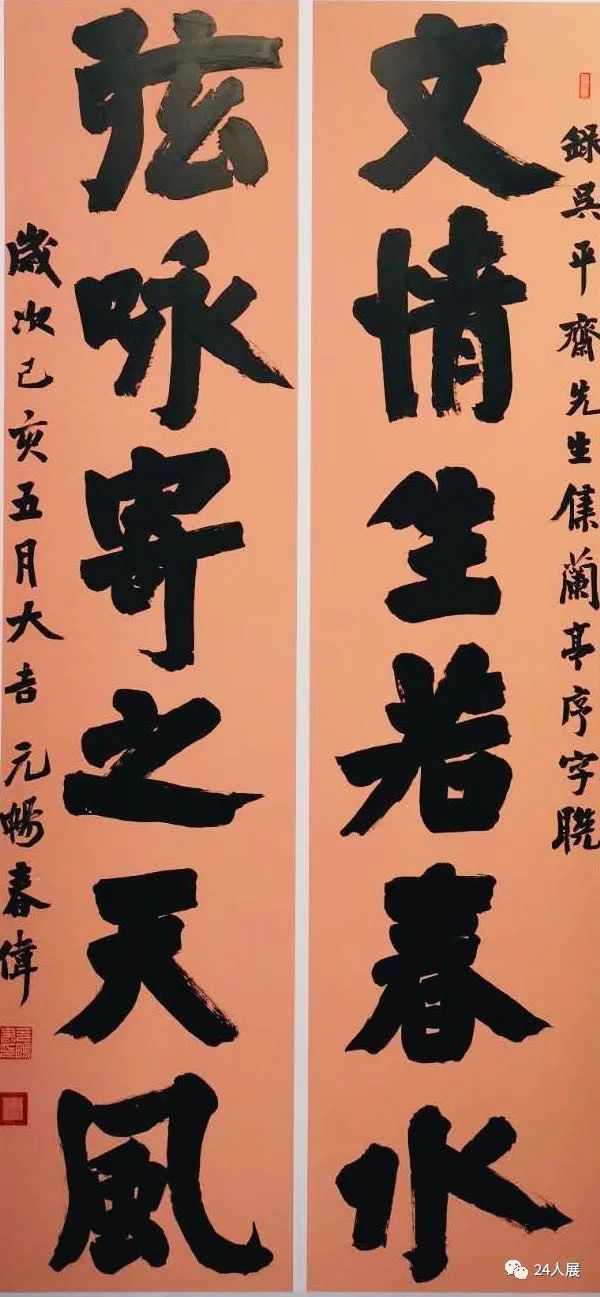 錄吳平齋先生集蘭亭序字聯
文情生若春水
弦咏寄之天風
歲次己亥五月大吉 元暢春偉
24人展